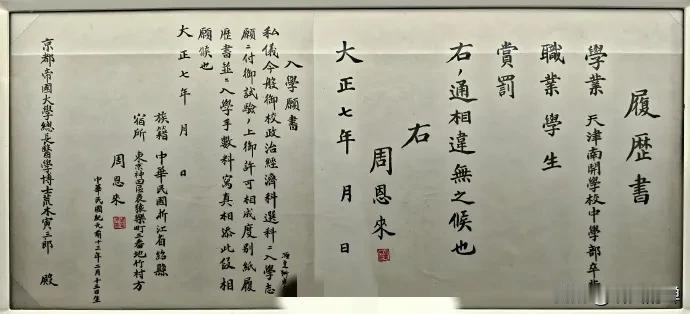 履歴書
學業 天津南開學校中學部卒業
職業 學生
賞罰
右ノ通相違無之候也
右
周恩來
大正七年 月 日
入學願書
私儀今般御校政治經濟科選科ニ入學志
願ニ付御試驗ノ上御許可相成度別紙履
歴書並ニ入學手數料寫真相添此段相
願候也
大正七年 月 日
族籍 中華民國浙江省紹縣
宿所 東京神田區表猿樂町三番地竹村方
周恩來
中華民國紀元前十三年二月十三日生
京都帝國大學總長醫學博士荒木寅三郎 殿